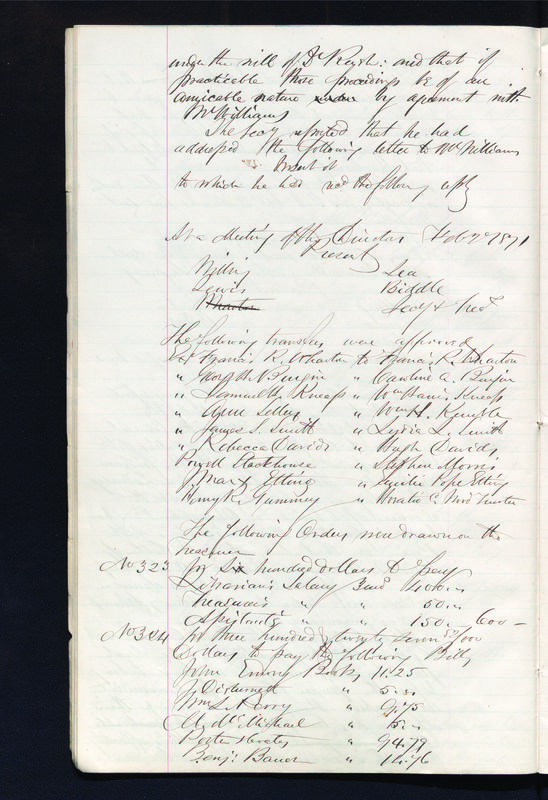 under the will of Dr Rush: and that if
practicable these proceedings be of an
amicable nature under by agreement with
Mr Williams
The Secy reported that he had
addressed the following letter to Mr Williams
Insert it
to which he had recd the following reply
At a Meeting of the Directors Feb 2d 1871
Present
Willing Lea
Lewis Biddle
Wharton Secy & Treas
The following transfers were approved
Est Francis R. Wharton to Francis R. Wharton
" " Caroline A.
" Samuel H. Kneass " Wm Kneass
" Anne Sellers " Wm H. Kemble
" James S. Smith " Lydia L. Smith
" Rebecca Davids " Hugh Davids
Powell Stackhouse " Stephen Morris
J Max Etting " Emilie Pope Etting
Henry R. Gummey " Horatio C. Wood Trustee
The following Orders were drawn on the
Treasurer
No 323 for Six hundred dollars to pay
Librarian's Salary 400..
Treasurer's " " 50..
Assistants " " 150.. 600 -
No 324 for three hundred & twenty seven /100
Dollars to pay the following Bills
John Emory Books 11.25
J Disturnell " 5..
Wm S. Perry "
A McMichael " 5..
Porter & Coates " 94.79
Benj: Bauer "